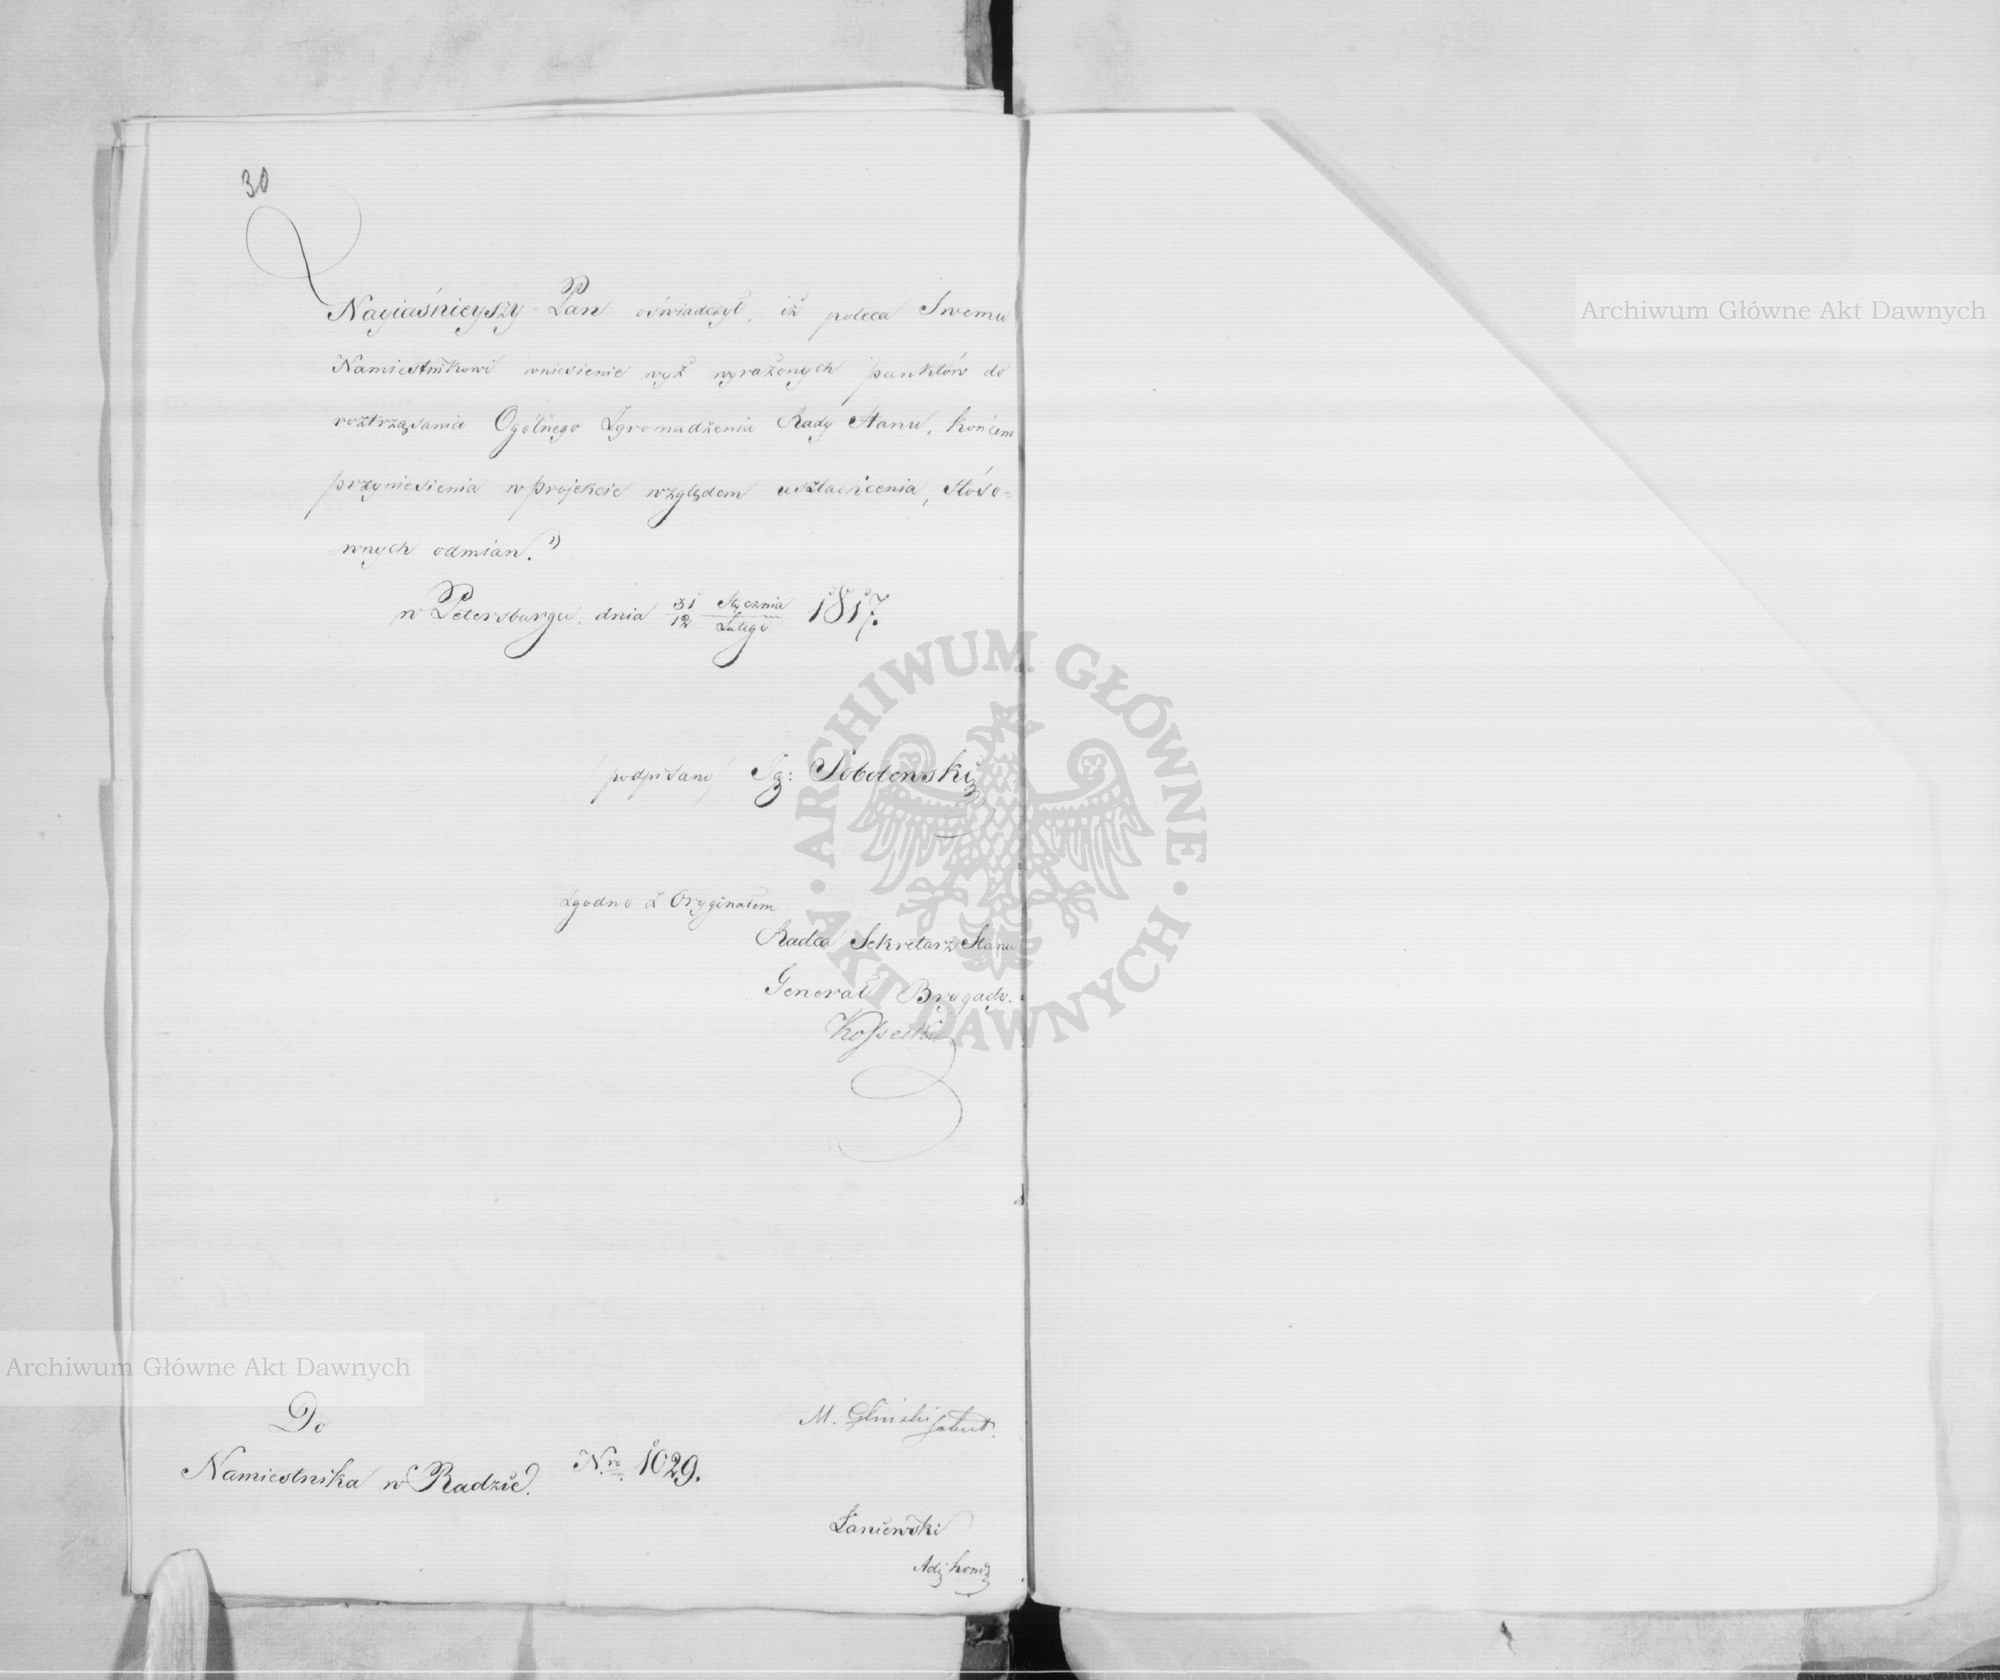 30
Nayiaśnieyszy Pan oświadczył, iż poleca Swemu
Namiestnikowi wniesienie wyż wyrażonych punktów do
roztrząsania Ogólnego Zgromadzenia Rady Stanu, końcem
przyniesienia w projekcie względem uszlachcenia, stóso-
wnych odmian."
w Petersburgu, dnia 31/12 Stycznia/Lutego 1817.
(podpisano) Ig: Sobolewski
Zgodno z Oryginałem
Radca Sekretarz Stanu
Generał Brygady.
Kossecki
Do
Namiestnika w Radzie.
N.ro 1029.
M. Gliński
Łaniewski
Adj:
Archiwum Główne Akt Dawnych
Archiwum Główne Akt Dawnych
ARCHIWUM GŁÓWNE AKT DAWNYCH